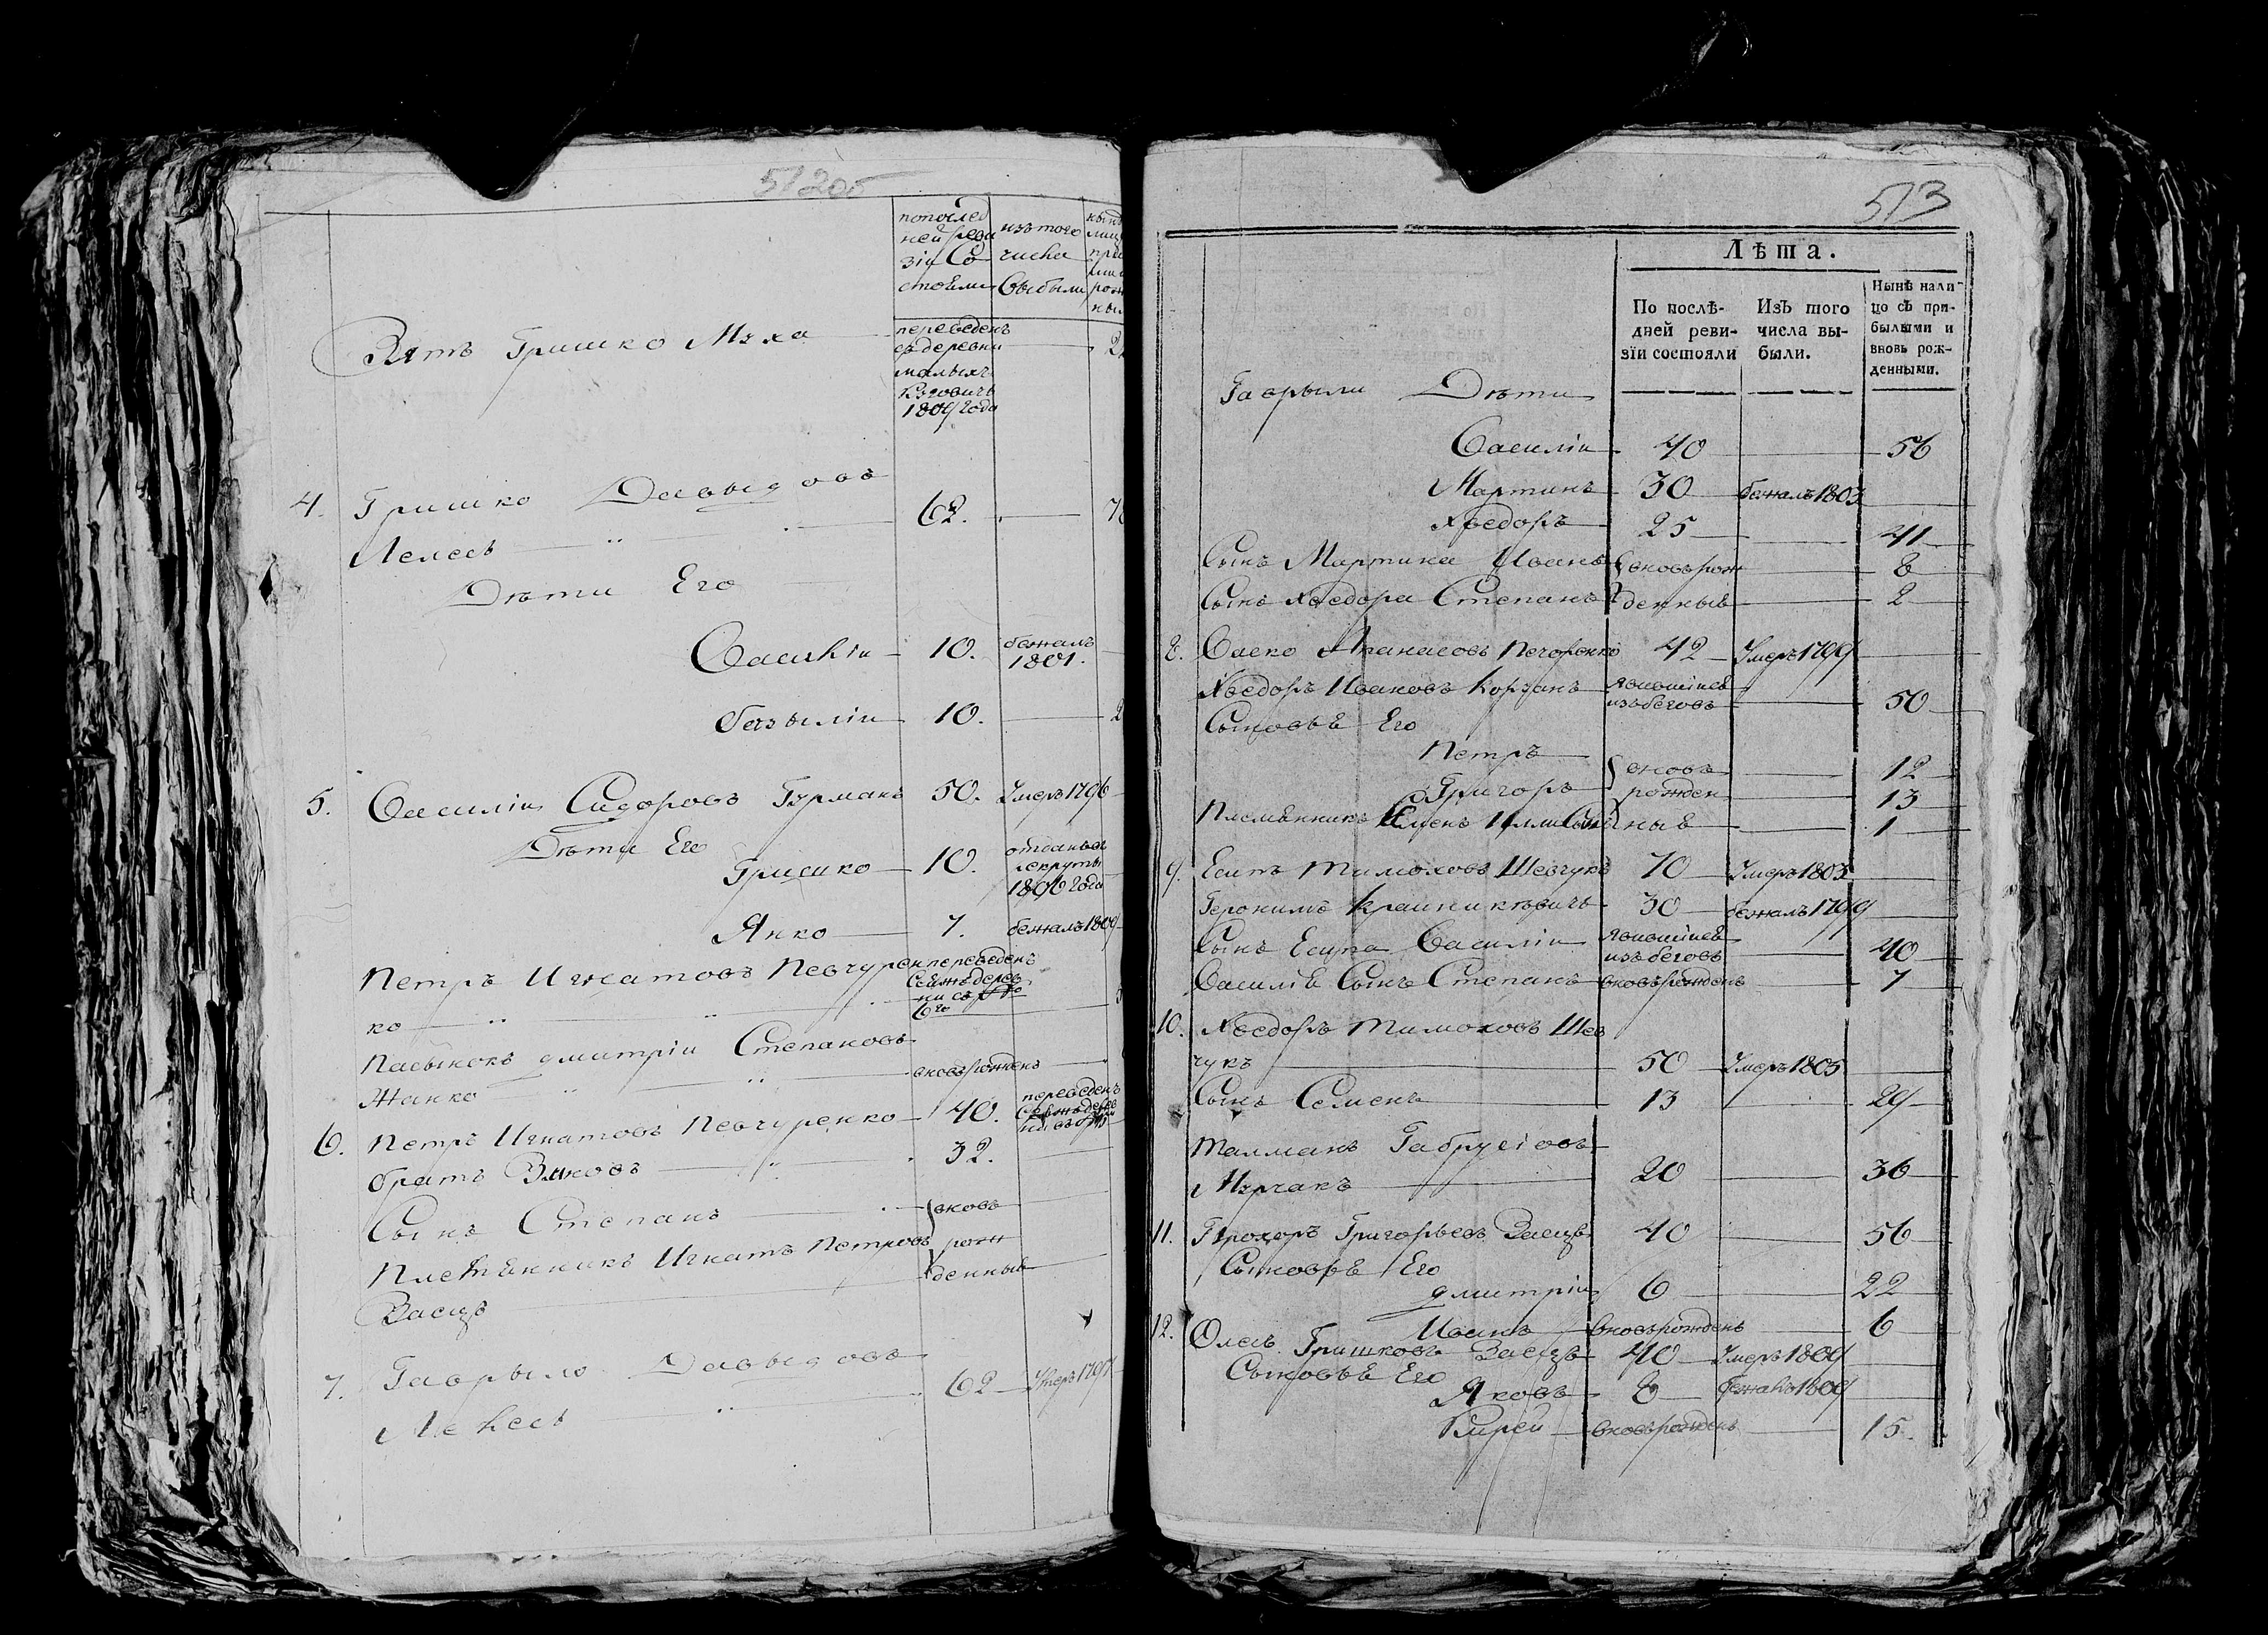 512об
попослед
ней реви
зіи Со
стояли
изъ того
числа
Выбыли
Зять Гришко Муха
переведенъ
съ деревни
малыхъ
1809 года
4. Гришко Давыдовъ
62.
Лелесъ
Дѣти Его
Василіи 10. бежалъ
1801.
базыліи 10.
5. Василіи Сидоровъ Гурманъ 50. Умеръ 1796
Дѣти Его
Гришко 10. отданъ въ
рекруты
1806 года
Янко 7. бежалъ 1809
Петръ Игнатовъ Певчурен переведенъ
ко
Пасынокъ дмитріи Степановъ
Жанко вновърожденъ
6. Петръ Игнатовъ Певчуренко 40. переведенъ
братъ Яковъ 32.
Сынъ Степанъ вновь
Племѣнникъ Игнатъ Петровъ рож
денные
Заецъ
7. Гаврыло Давыдовъ
62 Умеръ 1797
Лелесъ
513
Лѣта.
По послѣ-
дней реви-
зіи состояли
Изъ того
числа вы-
были.
Нынѣ нали-
цо съ при-
былыми и
вновь рож-
денными.
Гаврыли Дѣти
Василіи 40 56
Мартинъ 30 бежалъ 1803
Хведоръ 25 41
Сынъ Мартина Иванъ вновь рож 8
Сынъ Хведора Степанъ денные 2
8. Васко Апанасовъ Печоренко 42 Умеръ 1799
Хведоръ Ивановъ Корзанъ явившіися
изъ беговъ 50
Сыновѣ Его
Петръ вновь 12
Григоръ рожден 13
Племѣнникъ Семенъ ные 1
9. Есипъ Тимоховъ Шевчукъ 70 Умеръ 1803
Геронимъ 30 бежалъ 1799
Сынъ Есипа Василіи явившіися
изъ беговъ 40
Василіѣ Сынъ Степанъ вновърожденъ 7
10. Хведоръ Тимоховъ Шев
чукъ 50 Умеръ 1805
Сынъ Семенъ 13 29
Талманъ Габрусіовъ
Мурчакъ 20 36
11. Прохоръ Григорьевъ Заецъ 40 56
Сыновѣ Его
дмитріи 6 22
Иванъ вновърожденъ 6
12. Олесь Гришковъ Заецъ 40 Умеръ 1809
Сыновѣ Его
Яковъ 8 бежалъ 1809
Кирей вновърожденъ 15.